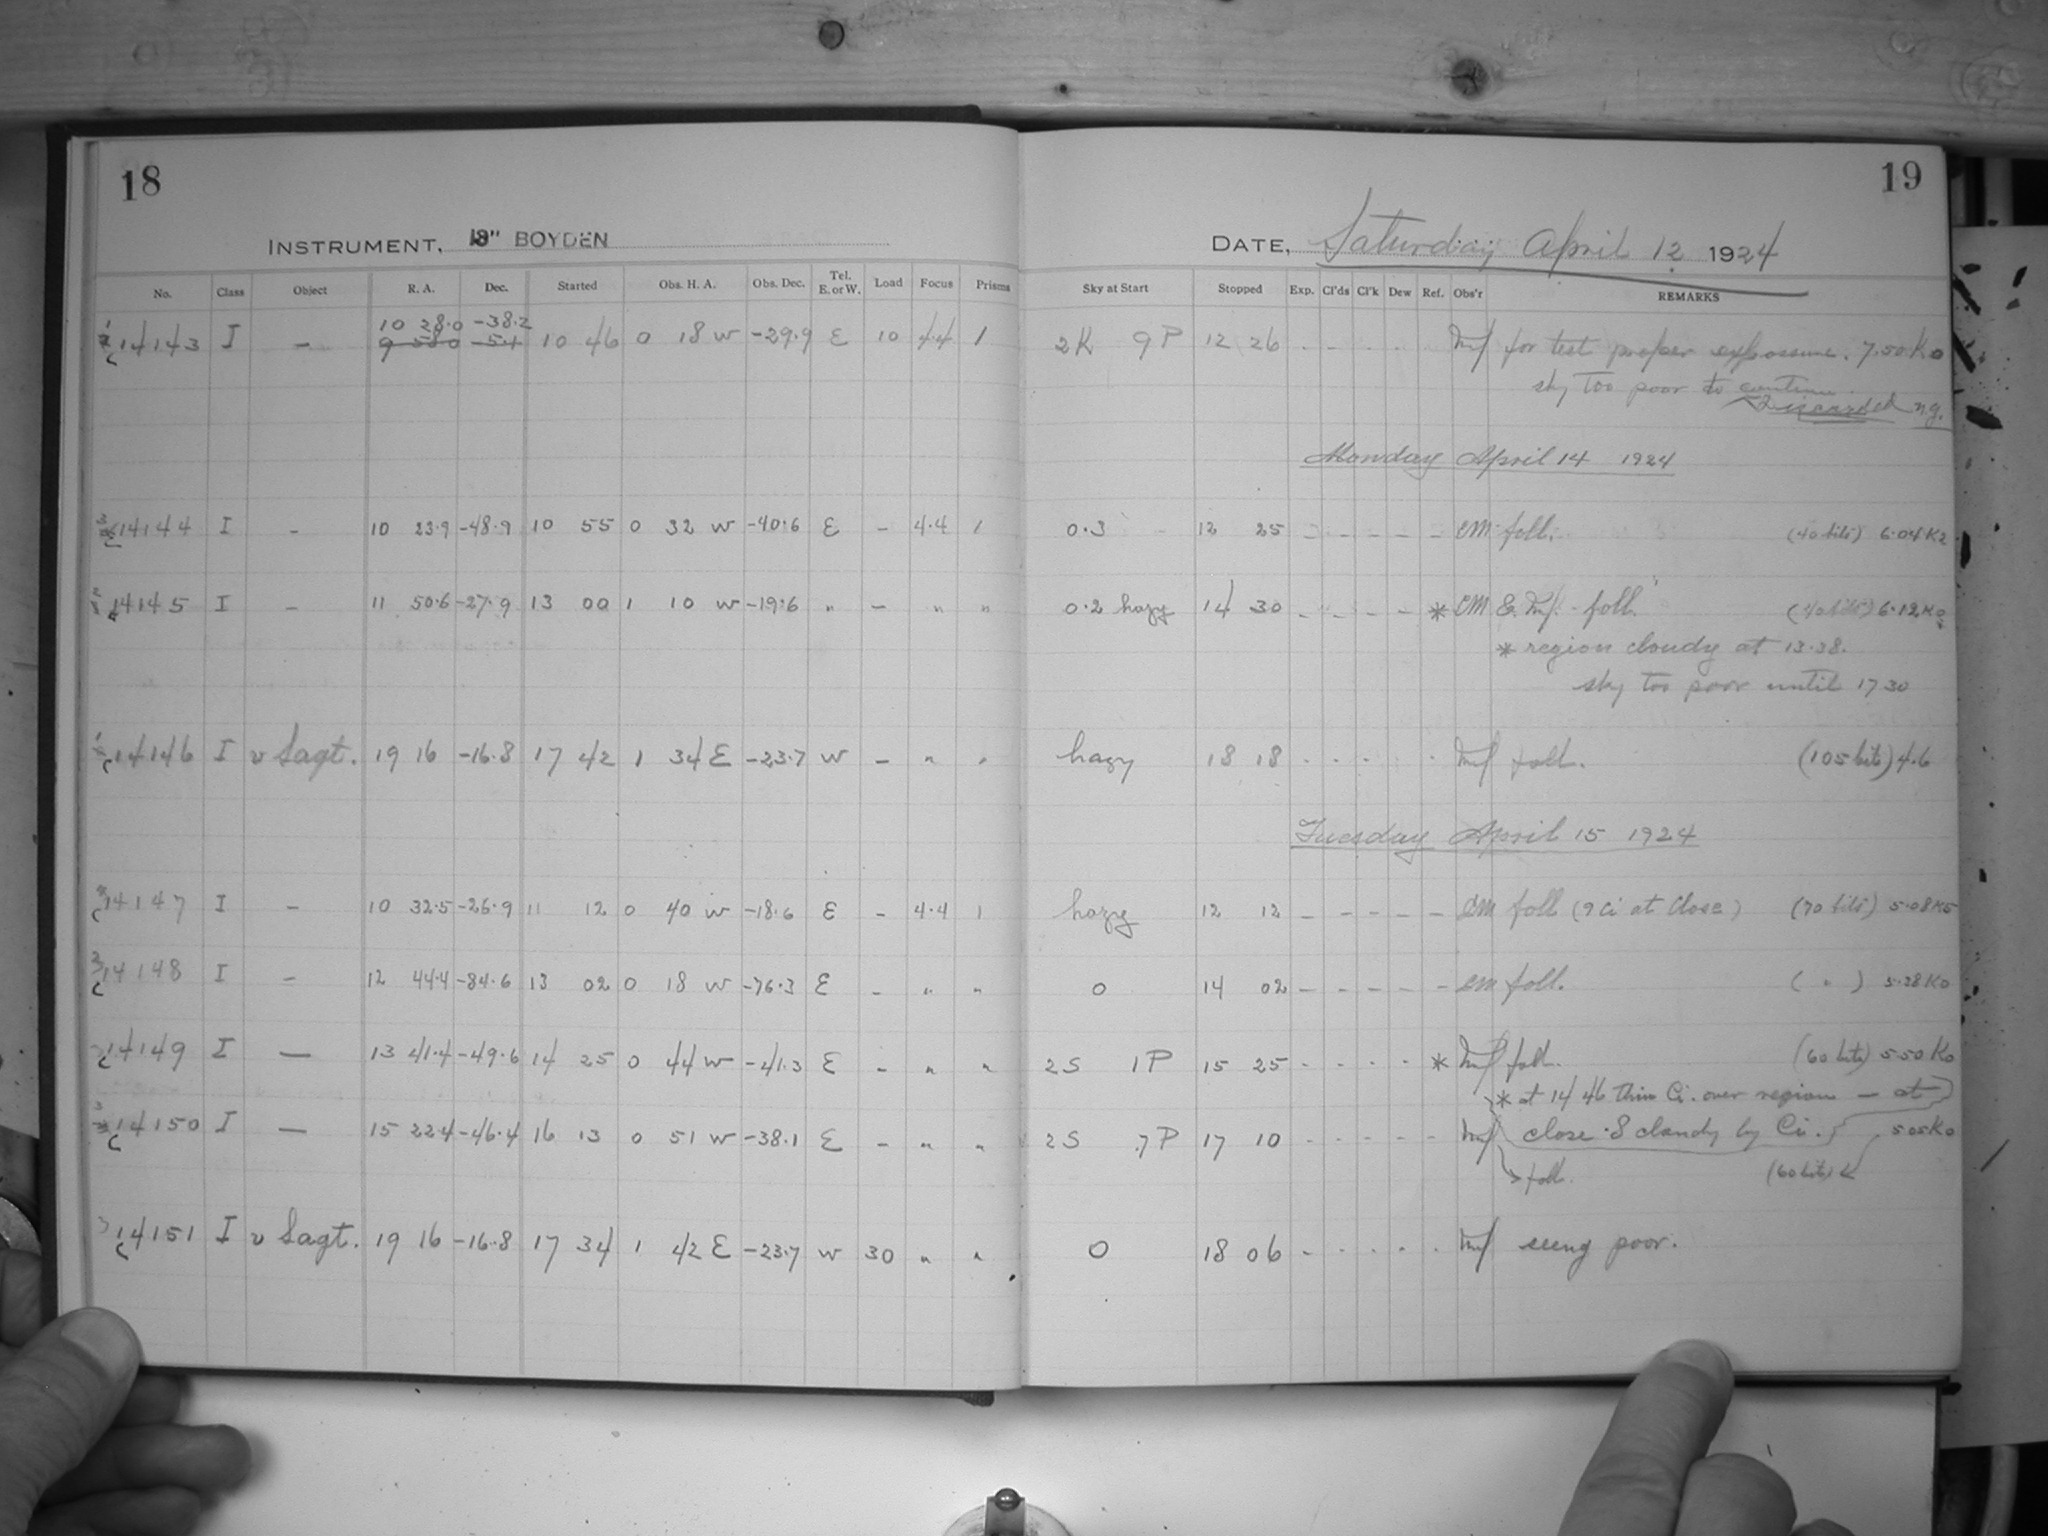 18
19
INSTRUMENT, 13" BOYDEN
DATE, Saturday April 12 1924
No. Class Object R. A. Dec. Started Obs. H. A. Obs. Dec. Tel. E. or W. Load Focus Prisms Sky at Start Stopped Exp. Cl'ds Cl'k Dew Ref. Obs'r REMARKS
10 28.0 -38.2
14143 I — 9 58.0 -5.1 10 46 0 18 W -29.9 E 10 4.4 1 2K 9P 12 26 - - - - - for test proper exposure. 7.50 K0
sky too poor to continue.
Discarded n.g.
Monday April 14 1924
14144 I - 10 23.9 -48.9 10 55 0 32 W -40.6 E - 4.4 1 0.3 12 25 - - - - - CM foll. (40 bits) 6.04 K2
14145 I - 11 50.6 -27.9 13 00 1 10 W -19.6 " - " " 0.2 hazy 14 30 - - - - * CM & foll. (40 bits) 6.12 K0
* region cloudy at 13.38.
sky too poor until 17 30
14146 I v Sagt. 19 16 -16.8 17 42 1 34 E -23.7 W - " " hazy 18 18 - - - - - foll. (105 bits) 4.6
Tuesday April 15 1924
14147 I - 10 32.5 -26.9 11 12 0 40 W -18.6 E - 4.4 1 hazy 12 12 - - - - - CM foll (9 Ci at Close) (70 bits) 5.08 K5
14148 I - 12 44.4 -84.6 13 02 0 18 W -76.3 E - " " 0 14 02 - - - - - CM foll. ( " ) 5.38 K0
14149 I — 13 41.4 -49.6 14 25 0 44 W -41.3 E - " " 2S 1P 15 25 - - - - * foll. (60 bits) 5.50 K0
* at 14 46 thin Ci. over region — at
14150 I — 15 22.4 -46.4 16 13 0 51 W -38.1 E - " " 2S .7P 17 10 - - - - - close .8 cloudy by Ci. 5.05 K0
foll. (60 bits)
14151 I v Sagt. 19 16 -16.8 17 34 1 42 E -23.7 W 30 " " 0 18 06 - - - - - seeing poor.